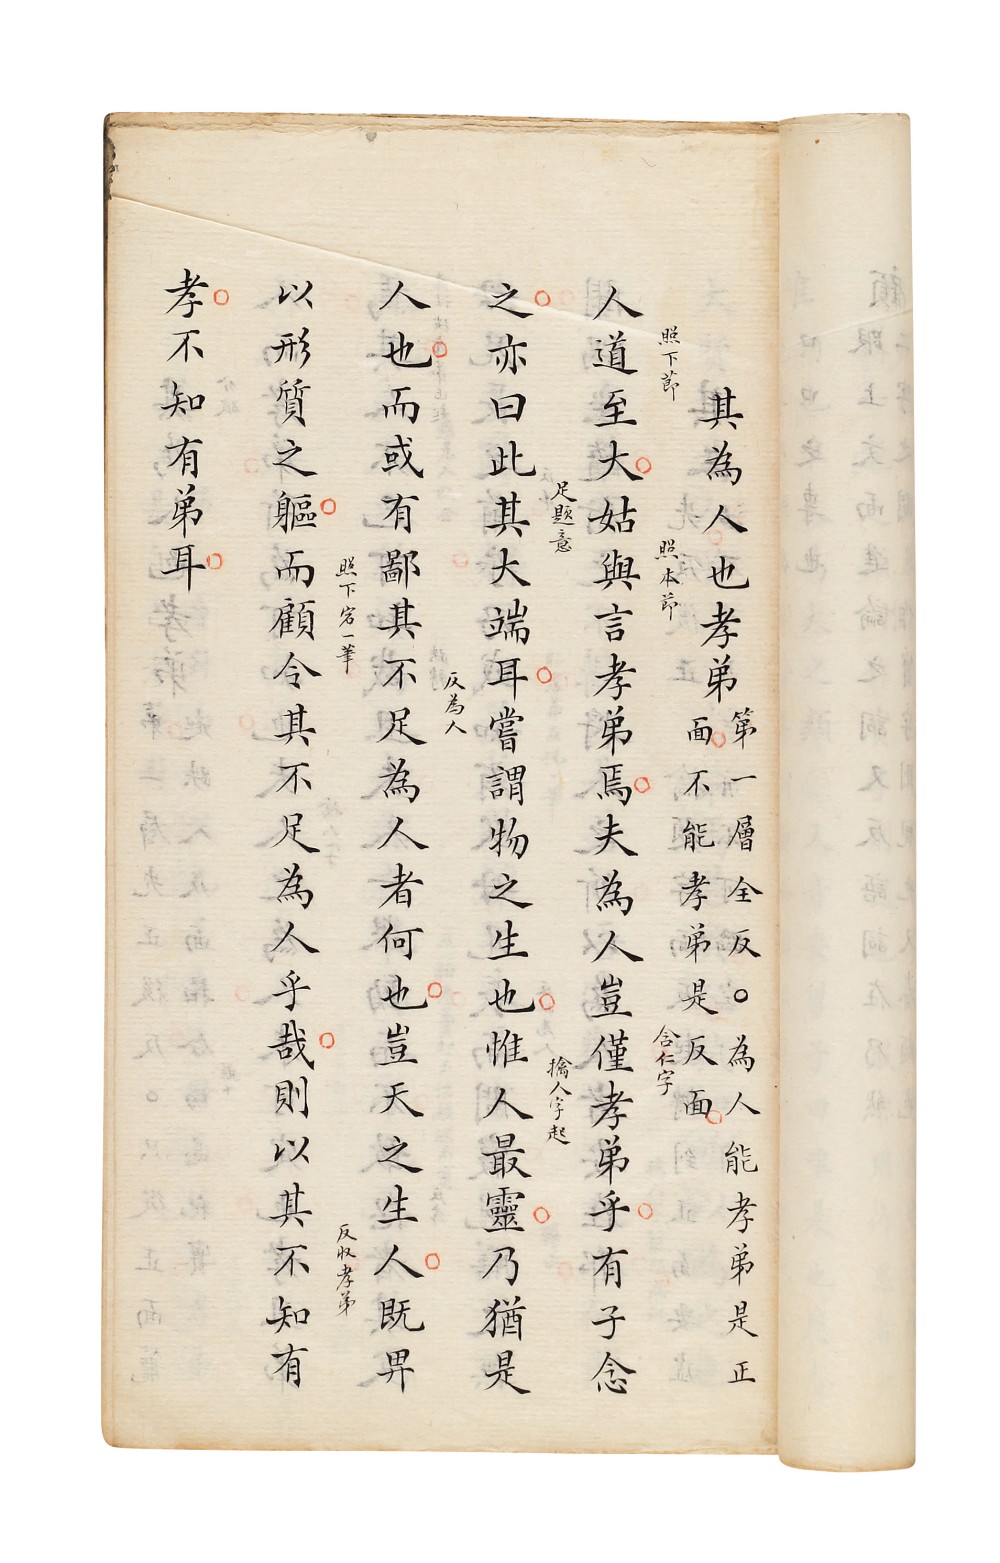 其為人也孝弟
第一層全反○為人能孝弟是正
面不能孝弟是反面
照下節
照本節
含仁字
人道至大姑與言孝弟焉夫為人豈僅孝弟乎有子念
足題意
擒人字起
之亦曰此其大端耳嘗謂物之生也惟人最靈乃猶是
反為人
人也而或有鄙其不足為人者何也豈天之生人既畀
照下宕一筆
反收孝弟
以形質之軀而顧令其不足為人乎哉則以其不知有
孝不知有弟耳